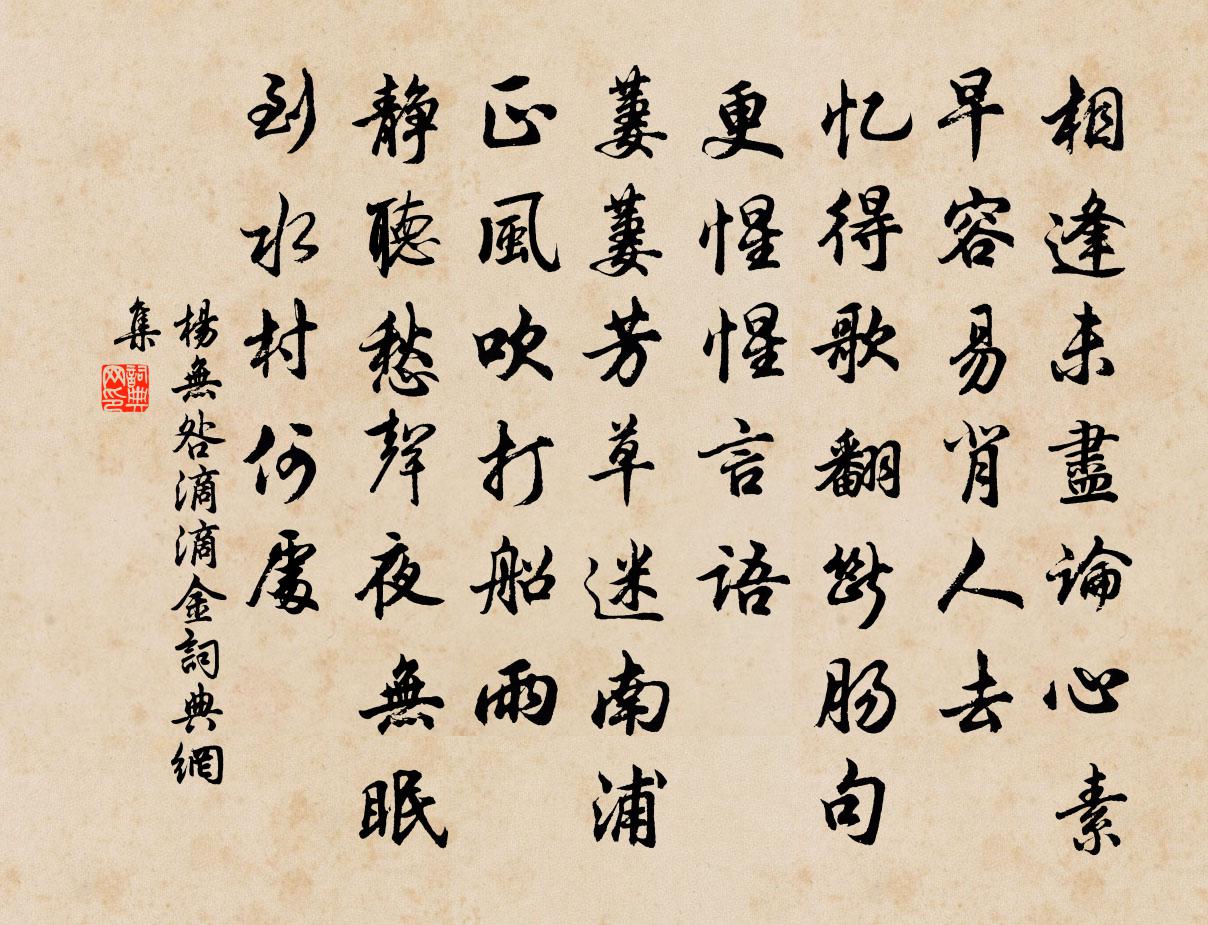 相逢未盡論心素
早容易背人去
忆得歌翻斷肠句
更惺惺言語
萋萋芳草迷南浦
正風吹打船雨
靜聽愁聲夜無眠
到水村何處
楊無咎滴滴金詞典網
集
詞典網印